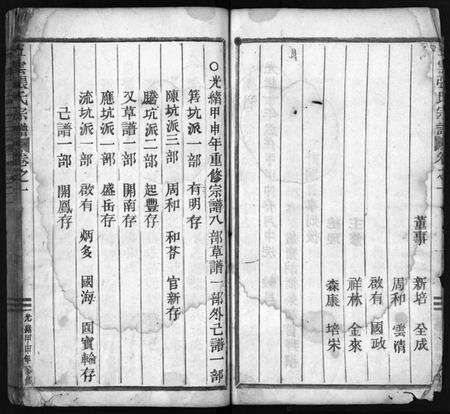 董事
新培 全成
周和 雲清
啟有 國政
祥林 金來
森康 培宋
張氏宗譜圖卷之一
○光緒甲申年重修宗譜八部草譜一部外己譜一部
筲坑派一部 有明存
陳坑派三部 周和 和芬 官新存
騰坑派二部 起豐存
又草譜一部 開南存
應坑派一部 盛岳存
流坑派一部 啟有 炳多 國海 圓寶輪存
己譜一部 開鳳存
張氏宗譜圖卷之一
光緒甲申年